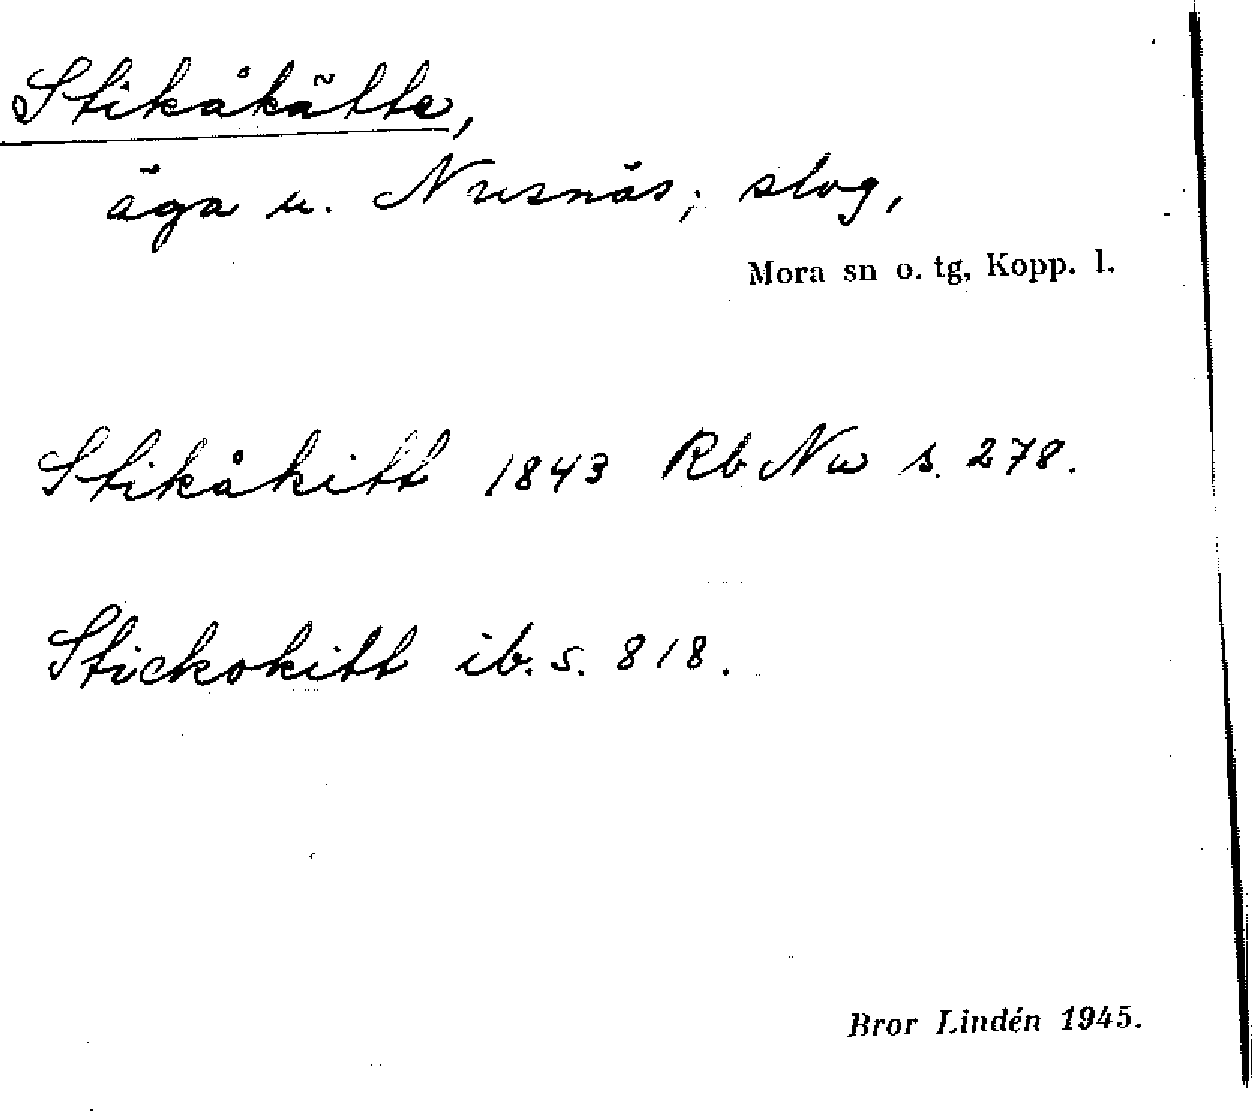 Stikåkätte,
äga u. Nusnäs; slog,
Mora sn o. tg, Kopp. l.
Stikåkitt 1843 Rb Nu s. 278.
Stickokitt ib. s. 818.
Bror Lindén 1945.